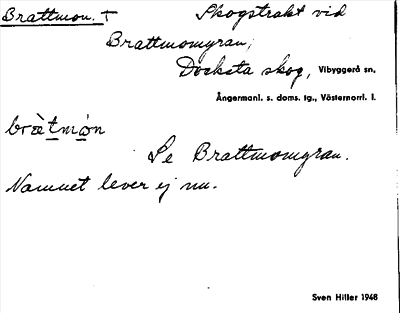 Brattmon. † Skogstrakt vid
Brattmomyran,
Docksta skog, Vibyggerå sn,
Ångermanl. s. doms. tg., Västernorrl. l.
bræ̀tmón
Se Brattmomyran.
Namnet lever ej nu.
Sven Hiller 1948